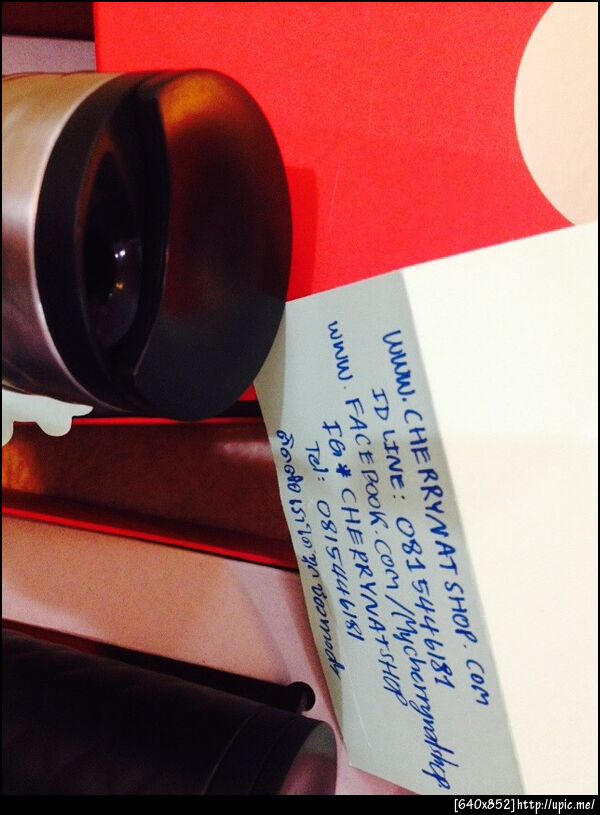 WWW.CHERRYNATSHOP.COM
ID LINE: 0815446181
WWW.FACEBOOK.COM/Mycherrynatshop
IG * CHERRYNATSHOP
Tel: 0815446181
ติดต่อเราได้ทุกช่องทางค่ะ
[640x852]http://upic.me/